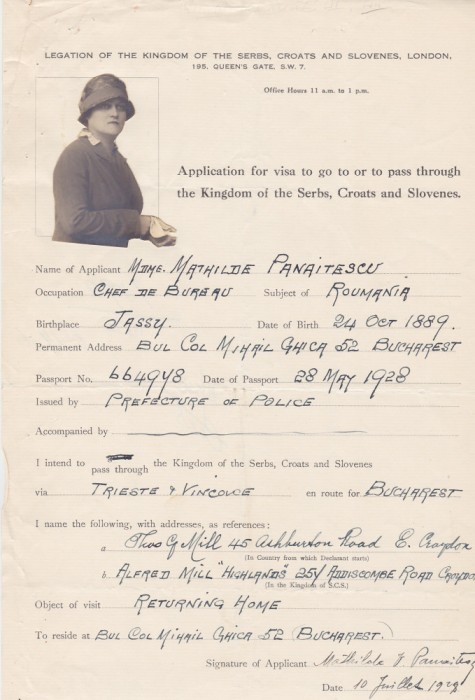 LEGATION OF THE KINGDOM OF THE SERBS, CROATS AND SLOVENES, LONDON,
195, QUEEN'S GATE, S.W. 7.
Office Hours 11 a.m. to 1 p.m.
Application for visa to go to or to pass through
the Kingdom of the Serbs, Croats and Slovenes.
Name of Applicant MDME. MATHILDE PANAITESCU
Occupation CHEF DE BUREAU Subject of ROUMANIA
Birthplace JASSY. Date of Birth 24 OCT 1889.
Permanent Address BUL COL MIHAIL GHICA 52 BUCHAREST
Passport No. 664948 Date of Passport 28 MAY 1928
Issued by PREFECTURE OF POLICE
Accompanied by
I intend to pass through the Kingdom of the Serbs, Croats and Slovenes
via TRIESTE & en route for BUCHAREST
I name the following, with addresses, as references:
a Thos G Mill 45 Ashburton Road E. Croydon
(In Country from which Declarant starts)
b ALFRED MILL "HIGHLANDS" 251 ADDISCOMBE ROAD CROYDON
(In the Kingdom of S.C.S.)
Object of visit RETURNING HOME
To reside at BUL COL MIHAIL GHICA 52 BUCHAREST.
Signature of Applicant Mathilde
Date 10 Juillet